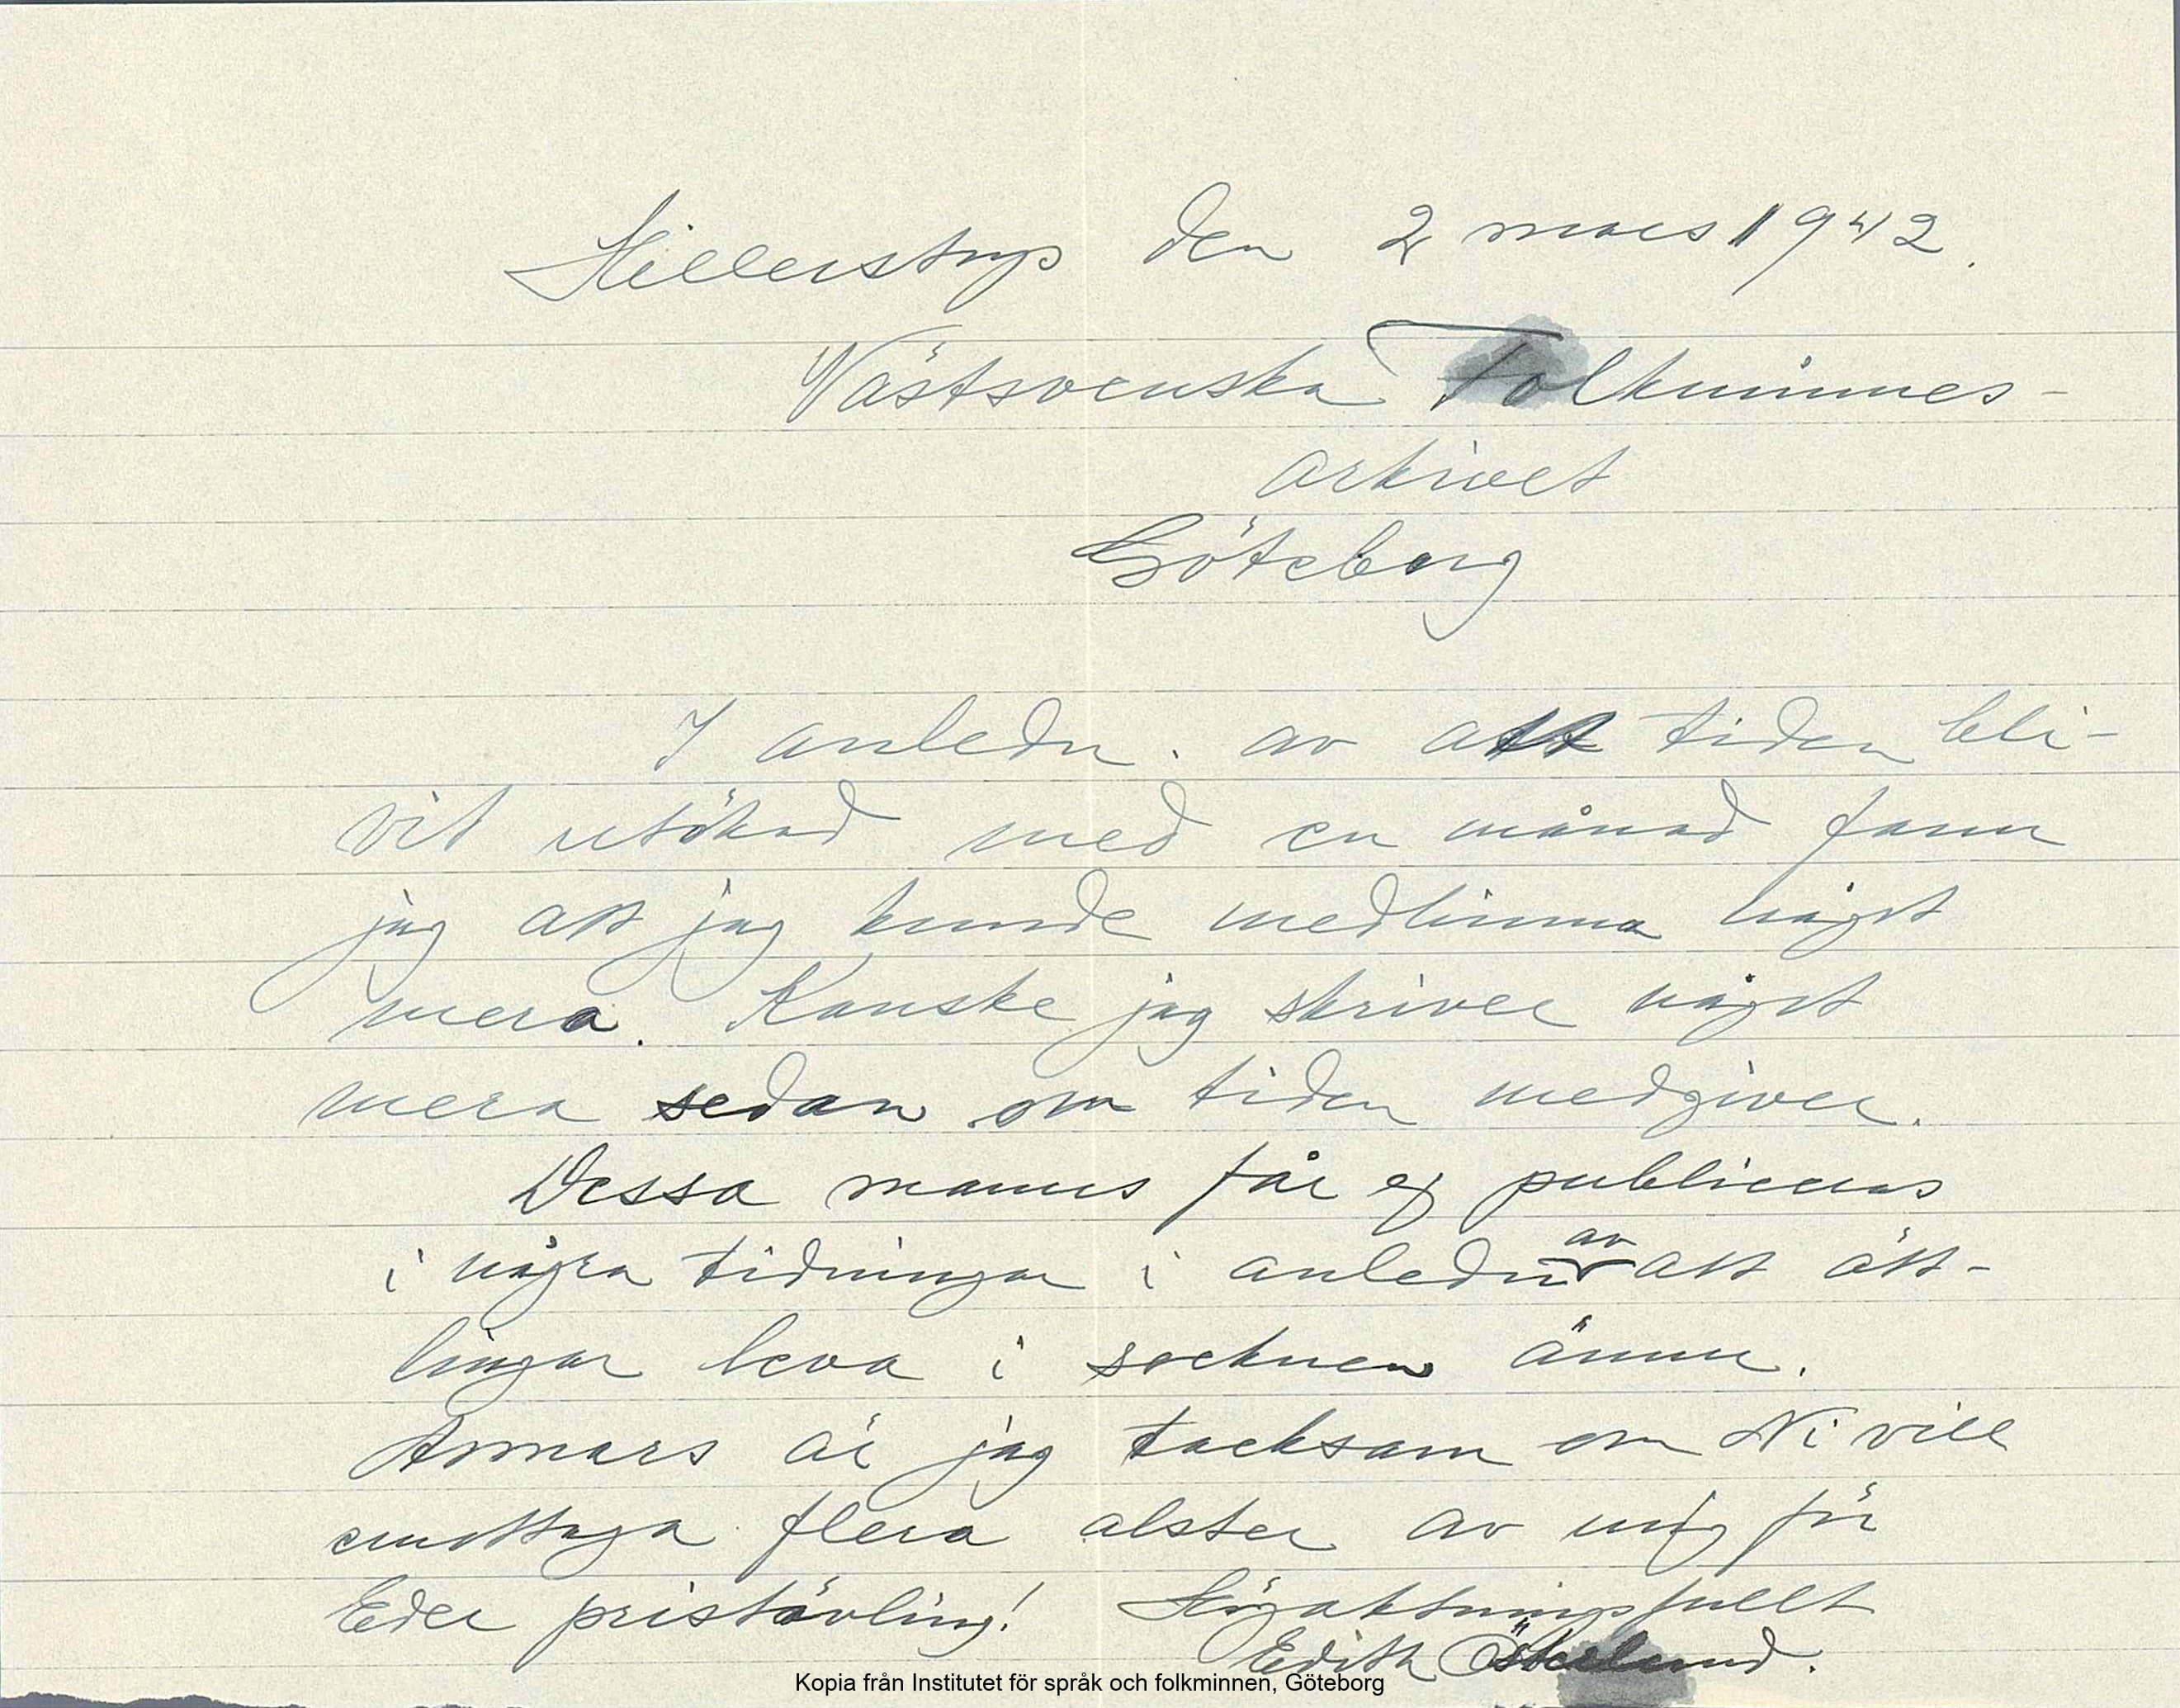 Hillerstorp den 2 mars 1942.
Västsvenska Folkminnes-
arkivet
Göteborg
I anledn. av att tiden bli-
vit utökad med en månad fann
jag att jag kunde medhinna något
mera. Kanske jag skriver något
mera sedan om tiden medgiver.
Dessa manus får ej publiceras
i några tidningar i anledn av att ätt-
lingar leva i socknen ännu.
Annars är jag tacksam om Ni vill
emottaga flera alster av mig för
Eder pristävling! Högaktningsfullt
Edith Österlund.
Kopia från Institutet för språk och folkminnen, Göteborg